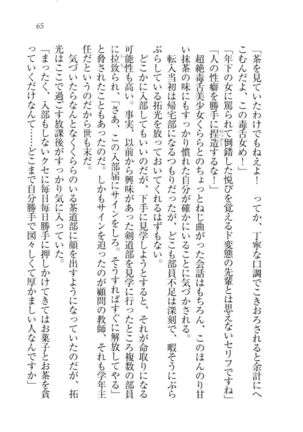 65
「茶を見ていたわけでもねえよ！　ってか、丁寧な口調でこきおろされると余計にへ
こむんだよ、この毒舌女め！」
「年下の女に罵られて倒錯した悦びを覚えるド変態の先輩とは思えないセリフですね」
「人の性癖を勝手に捏造するな！」
超絶毒舌美少女くららとのちょっとねじ曲がった会話はもちろん、このほんのり甘
い抹茶の味にもすっかり慣れた自分が確かにいることに気づかされた。
転入当初は帰宅部になるつもりだったが、どこも部員不足は深刻で、暇そうにぶら
ぶらしている拓光を放っておいてくれるはずもない。
どこかに入部してもいいのだが、下手に見学しようとすると、それが命取りになる
可能性も高い。事実、以前から興味があった剣道部を見学に行ったところ複数の部員
に囲まれ、「さあ、この入部届にサインをしろ。そうすればすぐに解放してやる」
と脅されたこともあったのだ。しかもサインを迫ったのが顧問の教師、それも学年主
任だというのだから世も末だ。
気づいたらなんとなくくららのいる茶道部に顔を出すようになっていたのだが、拓
光はここで過ごす放課後がすっかり気に入っていた。
「まったく、入部もしないクセに毎日毎日勝手に押しかけてきてはお菓子とお茶を貪
っていくだけなんて……どこまで自分勝手で図々しくて厚かましい人なんですか」